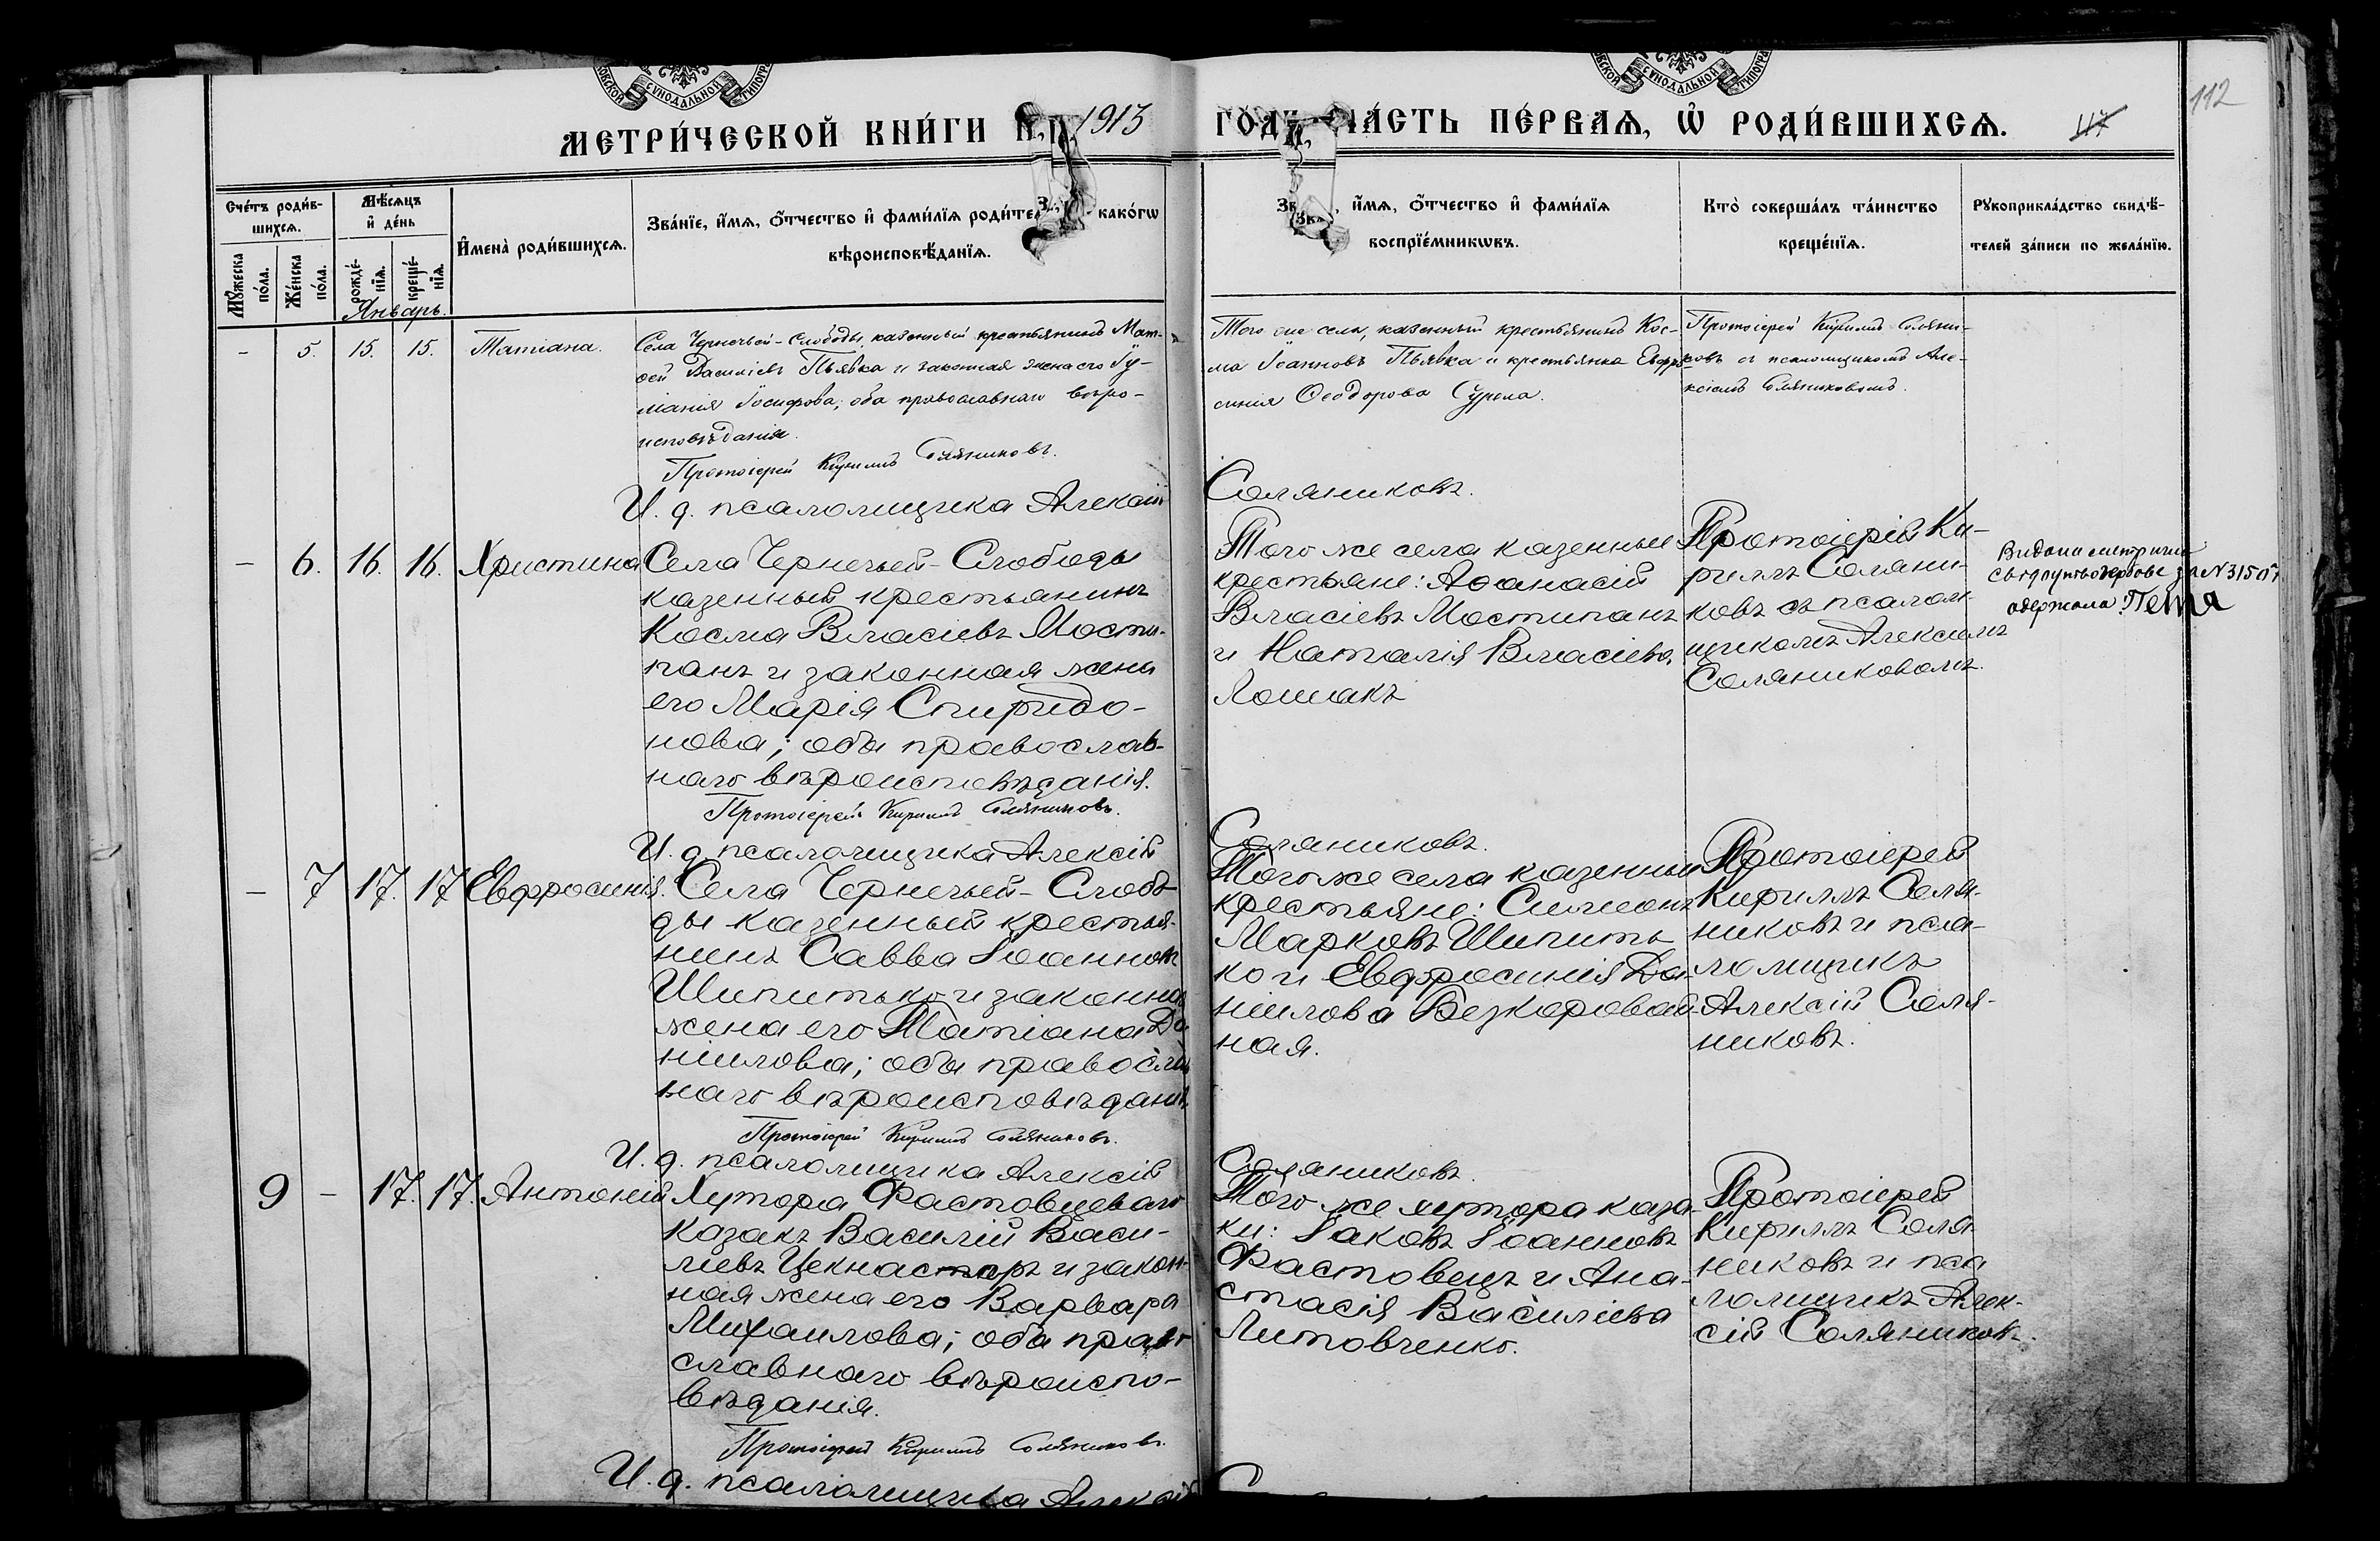 МЕТРИ́ЧЕСКОЙ КНИ́ГИ 1913 ГОДЪ, ЧА́СТЬ ПЕ́РВАѦ, Ѡ҆ РОДИ́ВШИХСѦ.
112
117
Сче́тъ роди́в-
шихсѧ.
Мѣ́сѧцъ
и҆ де́нь
И҆мена̀ роди́вшихсѧ.
Зва́нїе, и҆́мѧ, ѻ҆́тчество и҆ фами́лїѧ роди́тел како́гѡ
вѣроисповѣ́данїѧ.
Зв , и҆́мѧ, ѻ҆́тчество и҆ фами́лїѧ
воспрїе́мникѡвъ.
Кто̀ соверша́лъ та́инство
креще́нїѧ.
Рꙋкоприкла́дство свидѣ́-
телей за́писи по жела́нїю.
Мꙋ́жеска
по́ла.
Же́нска
по́ла.
рожде́-
нїѧ.
креще́-
нїѧ.
Январь.
– 5. 15. 15. Татіана.
Села Чернечьей-Слободы, казенный крестьянинъ Мат-
ѳей Василіевъ Пьявка и законная жена его Іу-
ліанія Іосифова; оба православнаго вѣро-
исповѣданія.
Протоіерей Кириллъ Соляниковъ.
И. д. псаломщика Алексій
Того же села, казенный крестьянинъ Кос-
ма Іоанновъ Пьявка и крестьянка Евфро-
синія Ѳеодорова
Соляниковъ.
Протоіерей Кириллъ Соляни-
ковъ съ псаломщикомъ Але-
ксіемъ Соляниковымъ.
– 6. 16. 16. Христина
Села Чернечьей-Слободы
казенный крестьянинъ
Косма Власіевъ Мости-
панъ и законная жена
его Марія Спиридо-
нова; оба православ-
наго вѣроисповѣданія.
Протоіерей Кириллъ Соляниковъ.
И. д. псаломщика Алексій
Того же села казенные
крестьяне: Аѳанасій
Власіевъ Мостипанъ
и Наталія Власіева
Лошакъ
Соляниковъ.
Протоіерей Ки-
риллъ Соляни-
ковъ съ псалом-
щикомъ Алексіемъ
Соляниковомъ.
за №315
одержала:
– 7 17. 17 Евфросинія.
Села Чернечьей-Слобо-
ды казенный крестья-
нинъ Савва Іоанновъ
Шипитько и законная
жена его Татіана Да-
ніилова; оба православ-
наго вѣроисповѣданія.
Протоіерей Кириллъ Соляниковъ.
И. д. псаломщика Алексій
Того же села казенные
крестьяне: Симеонъ
Марковъ Шипить-
ко и Евфросинія Да-
ніилова Безкоровай-
ная.
Соляниковъ.
Протоіерей
Кириллъ Соля-
никовъ и пса-
ломщикъ
Алексій Соля-
никовъ.
9 – 17. 17. Антоній
Хутора Фастовцеваго
казакъ Василій Васи-
ліевъ и закон-
ная жена его Варвара
Михаилова; оба право-
славнаго вѣроиспо-
вѣданія.
Протоіерей Кириллъ Соляниковъ.
И. д. псаломщика Алексій
Того же хутора каза-
ки: Іаковъ Іоанновъ
Фастовецъ и Ана-
стасія Василіева
Литовченко.
Протоіерей
Кириллъ Соля-
никовъ и пса-
ломщикъ Алек-
сій Соляниковъ.